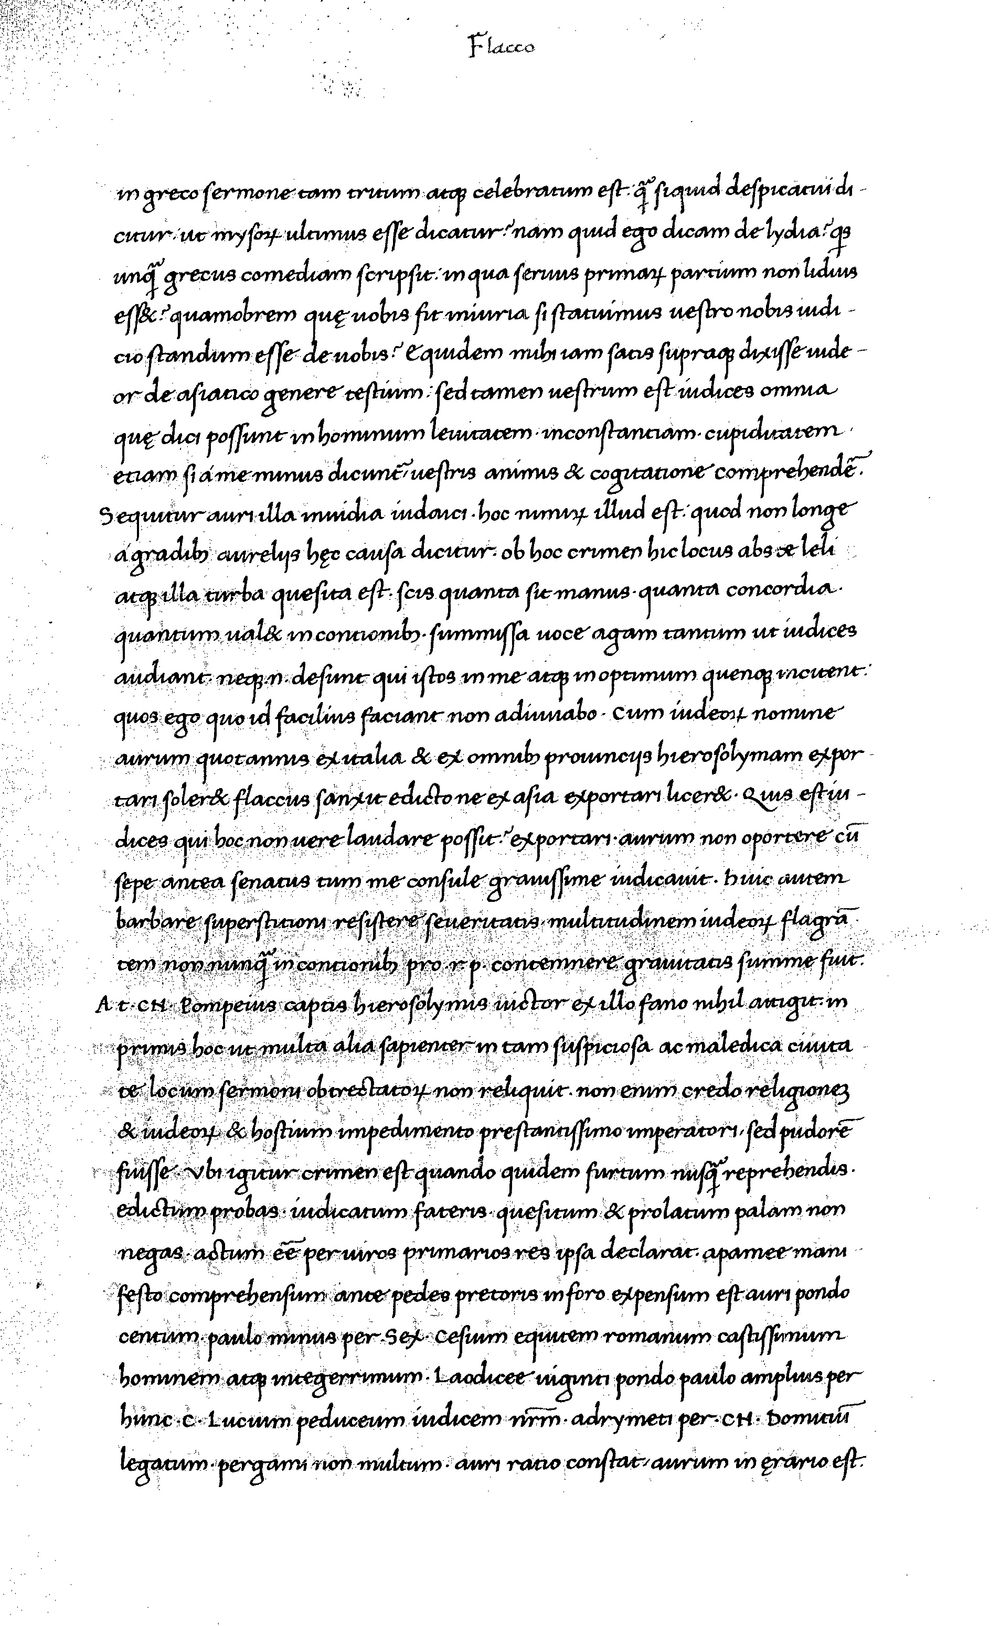 Flacco
in greco sermone tam tritum atqꝫ celebratum est. qᷓ siquid despicatui di-
citur. ut mysoꝝ ultimus esse dicatur? nam quid ego dicam de lydia? qs
unqᷓ grecus comediam scripsit: in qua seruus primaꝝ partium non lidius
ess&? quamobrem quę uobis fit iniuria si statuimus uestro nobis iudi-
cio standum esse de uobis? Equidem mihi iam satis supraqꝫ dixisse uide-
or de asiatico genere testium: sed tamen uestrum est iudices omnia
quę dici possunt in hominum leuitatem. inconstantiam. cupiditatem.
etiam si a me minus dicunt̄, uestris animis & cogitatione comprehendē.
Sequitur auri illa inuidia iudaici. hoc nimiꝝ illud est: quod non longe
a gradibꝫ aurelijs hęc causa dicitur. ob hoc crimen hic locus abs te leli
atqꝫ illa turba quesita est. scis quanta sit manus. quanta concordia.
quantum ual& in contionibꝫ. summissa uoce agam tantum ut iudices
audiant. neqꝫ.n. desunt qui istos in me atqꝫ in optimum quenqꝫ incitent:
quos ego quo id facilius faciant non adiuuabo. Cum iudeoꝝ nomine
aurum quotannis ex italia & ex omnibꝫ prouincijs hierosolymam expor
tari soler& flaccus sanxit edicto ne ex asia exportari licer&. Quis est iu-
dices qui hoc non uere laudare possit? exportari. aurum non oportere cū
sepe antea senatus tum me consule grauissime iudicauit. Huic autem
barbare superstitioni resistere seueritatis. multitudinem iudeoꝝ flagrā
tem non nunqᷓ in contionibꝫ pro .r.p. contemnere grauitatis summe fuit.
At. CN. Pompeius captis hierosolymis uictor ex illo fano nihil attigit. in
primis hoc ut multa alia sapienter in tam suspiciosa ac maledica ciuita
te locum sermoni obtrectatoꝝ non reliquit. non enim credo religioneꝫ
& iudeoꝝ & hostium impedimento prestantissimo imperatori, sed pudorē
fuisse. Vbi igitur crimen est quando quidem furtum nusqᷓ reprehendis.
edictum probas. iudicatum fateris. quesitum & prolatum palam non
negas. actum eē̄ per uiros primarios res ipsa declarat. apamee mani
festo comprehensum ante pedes pretoris in foro expensum est auri pondo
centum. paulo minus per .Sex. Cesium equitem romanum castissimum
hominem atqꝫ integerrimum. Laodicee uiginti pondo paulo amplius per
hunc .C. Lucium peduceum iudicem nrm̄. adrymeti per .CN. Domitiū
legatum. pergami non multum. auri ratio constat, aurum in ęrario est.